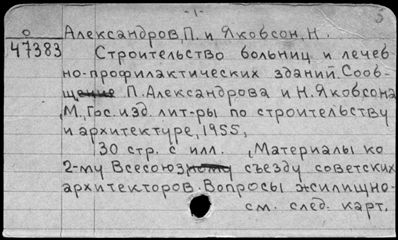 -1-
5
О Александров, П. и Яковсон, Н.
47383 Строительство больниц и лечеб
но-профилактических зданий. Сооб-
щение П. Александрова и Н. Яковсона
М., Гос. изд. лит-ры по строительству
и архитектуре, 1955,
30 стр. с илл. , Материалы ко
2-му Всесоюзному съезду советских
архитекторов. Вопросы жилищно-
см. след. карт.